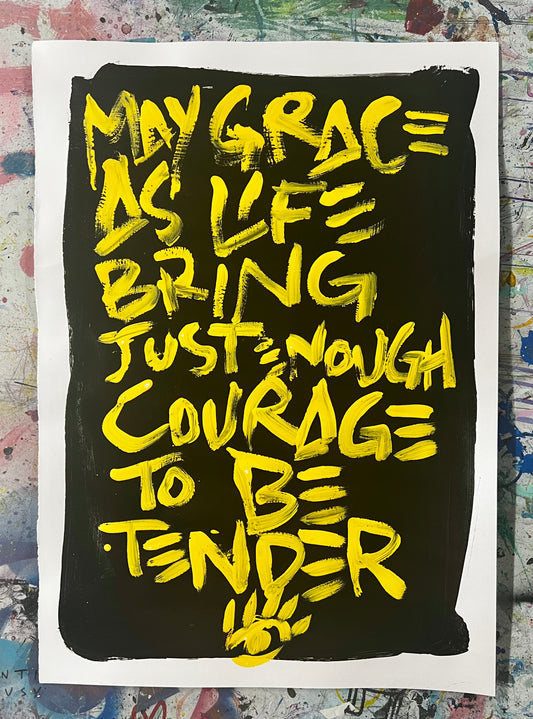 MAY GRACE
AS LIFE
BRING
JUST ENOUGH
COURAGE
TO BE
TENDER